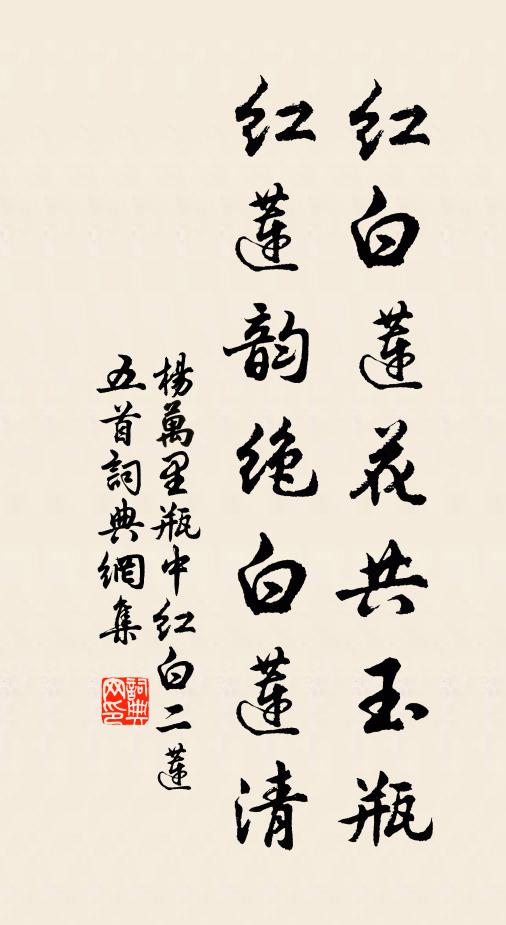 红白莲花共玉瓶
红莲韵绝白莲清
楊萬里瓶中红白二蓮
五首詞典網集
詞典
网印